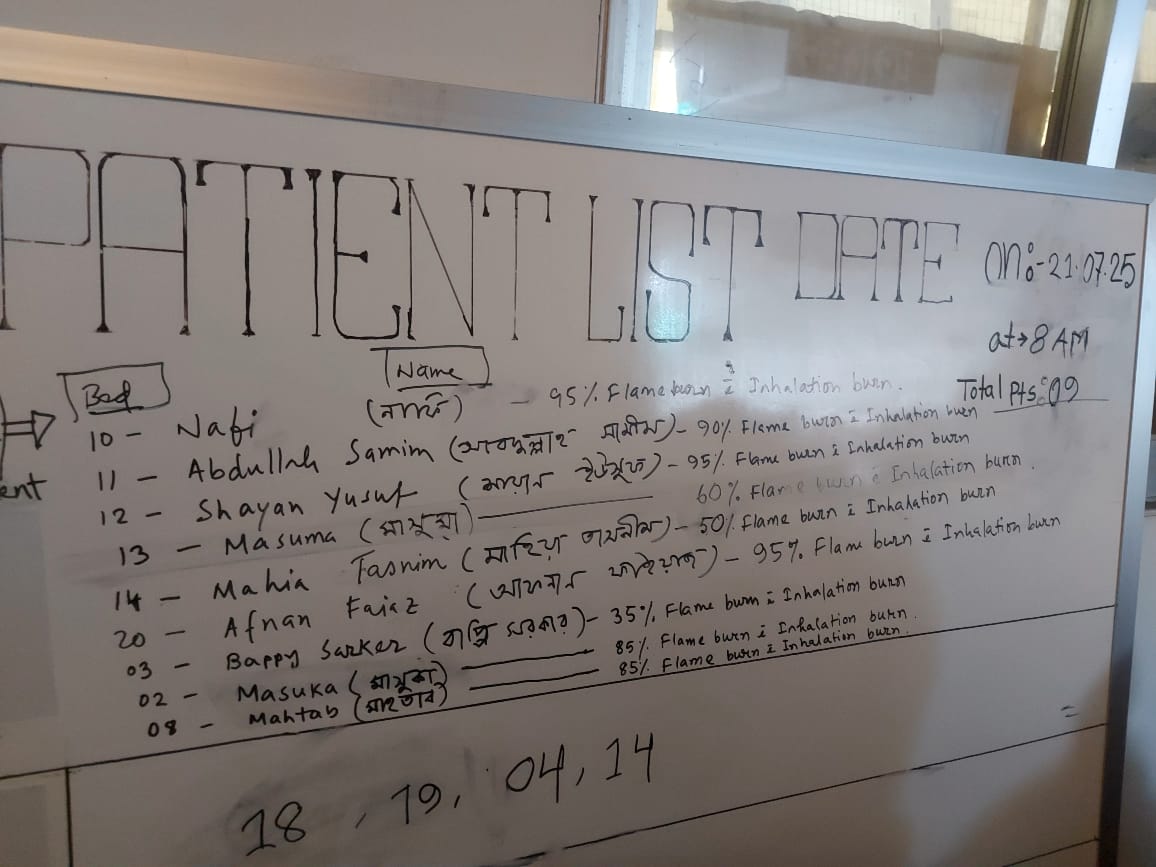 PATIENT LIST DATE on:-21.07.25
at→8 AM
Total Pts:09
Bed Name
10 - Nafi (নাফি) - 95% Flame burn c̄ Inhalation burn.
11 - Abdullah Samim (আবদুল্লাহ সামীম) - 90% Flame burn c̄ Inhalation burn
12 - Shayan Yusuf (সায়ান ইউসুফ) - 95% Flame burn c̄ Inhalation burn
13 - Masuma (মাসুমা) 60% Flame burn c̄ Inhalation burn.
ent
14 - Mahia Tasnim (মাহিয়া তাসনীম) - 50% Flame burn c̄ Inhalation burn
20 - Afnan Faiaz (আফনান ফাইয়াজ) - 95% Flame burn c̄ Inhalation burn
03 - Bappy Sarker (বাপ্পি সরকার) - 35% Flame burn c̄ Inhalation burn
02 - Masuka (মাসুকা) 85% Flame burn c̄ Inhalation burn.
08 - Mahtab (মাহতাব) 85% Flame burn c̄ Inhalation burn.
18, 19, 04, 14